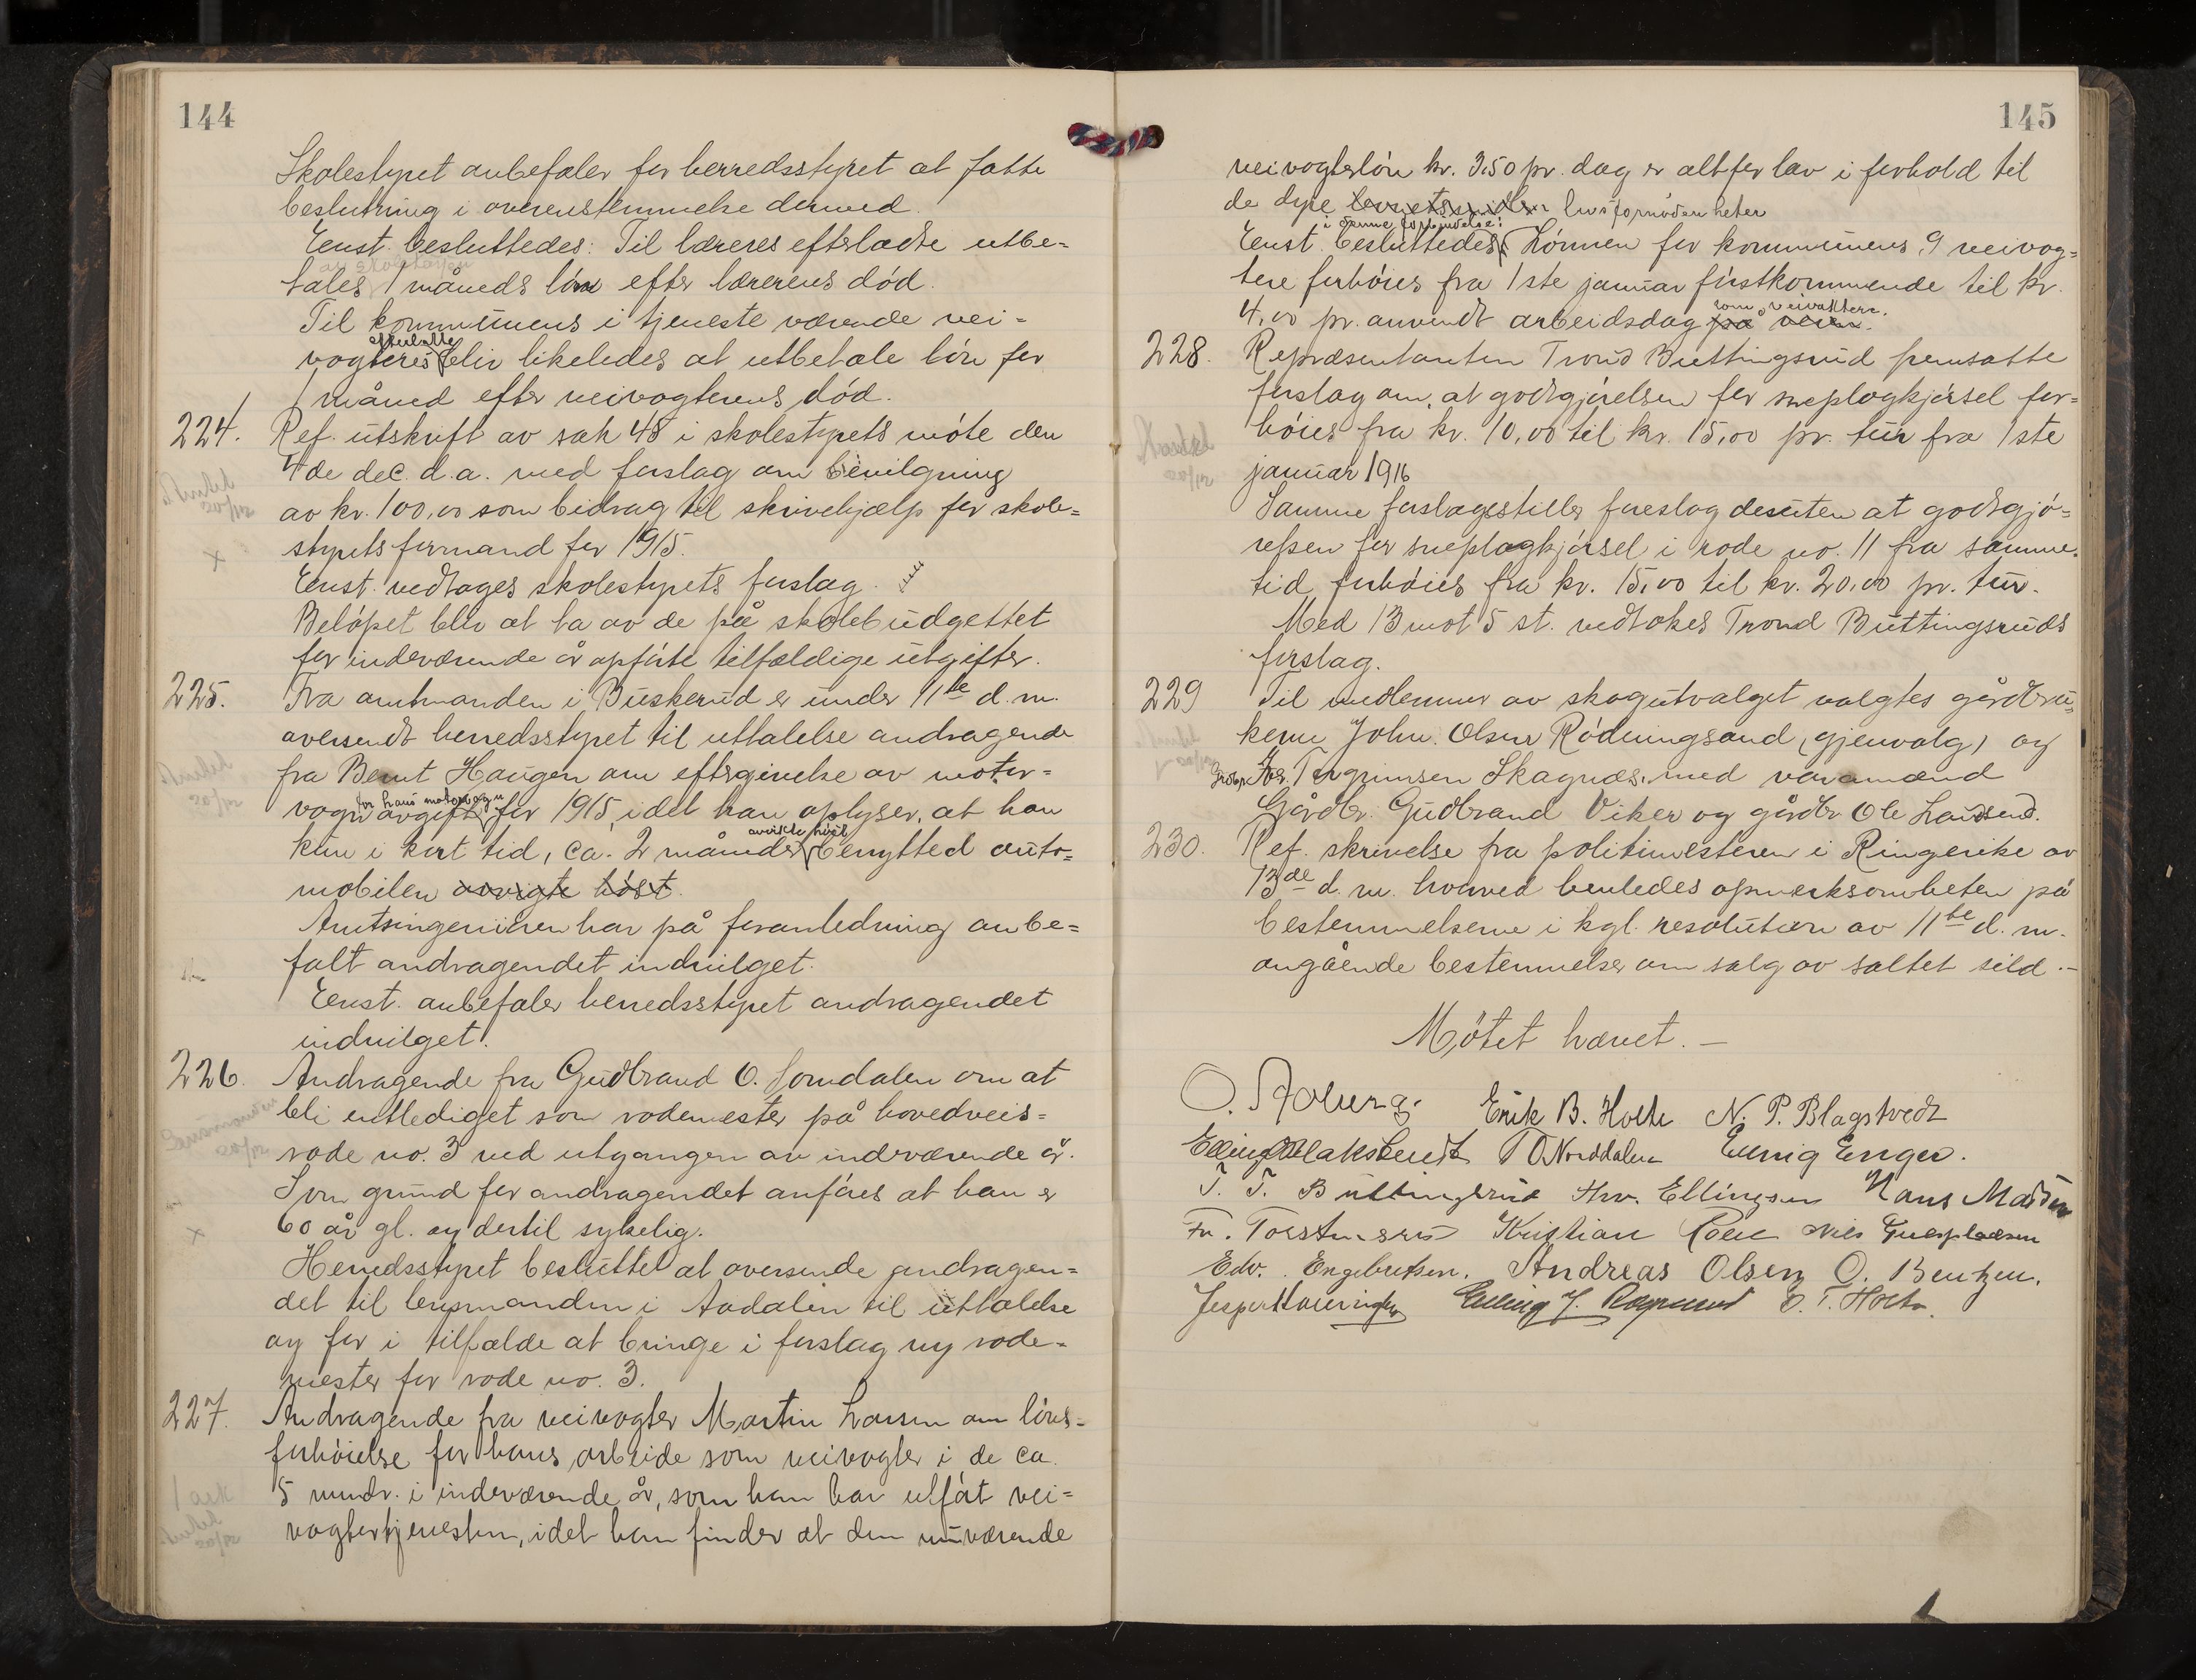 144
Skolestyret anbefaler for herredsstyret at fatte
beslutning i overenstemmelse dermed.
Enst. besluttedes: Til læreres efterladte utbe-
av skolekassen
tales 1 måneds løn efter lærerens død.
Til kommunens i tjeneste værende vei-
efterlatte
vogteres bliv likeledes at utbetale løn for
1 måned efter veivogterens død.
224. Ref. utskrift av sak 48 i skolestyrets møte den
4de dec. d.a. med forslag om bevilgning
av kr. 100,00 som bidrag til skrivehjælp for skole-
styrets formand for 1915.
Enst. vedtages skolestyrets forslag.
Beløpet bliv at ta av de på skolebudgettet
for indeværende år opførte tilfældige utgifter.
225. Fra amtmanden i Buskerud er under 11te d.m.
oversendt herredsstyret til uttalelse andragende
fra Bernt Haugen om eftergivelse av motor-
for hans motorvogn
vognavgift for 1915, idet han oplyser, at han
avvikte høst
kun i kort tid, ca. 2 måneder benyttet auto-
mobilen avvigte høst.
Amtsingeniøren har på foranledning anbe-
falt andragendet indvilget.
Enst. anbefaler herredsstyret andragendet
indvilget.
226. Andragende fra Gudbrand O. Somdalen om at
bli entlediget som rodemester på hovedveis-
rode no. 3 ved utgangen av indeværende år.
Som grund for andragendet anføres at han er
60 år gl. og dertil sykelig.
Herredsstyret besluttet at oversende andragen-
det til lensmanden i Aadalen til uttalelse
og for i tilfælde at bringe i forslag ny rode-
mester for rode no. 3.
227. Andragende fra veivogter Martin Larsen om løns-
forhøielse for hans arbeide som veivogter i de ca.
5 mndr. i indeværende år, som han har utført vei-
vogtertjenesten, idet han finder at den nuværende
145
veivogterløn kr. 3,50 pr. dag er altfor lav i forhold til
de dyre levnetsmidler livsfornødenheter
i denne forbindelse:
Enst. besluttedes Lønnen for kommunens 9 veivog-
tere forhøies fra 1ste januar førstkommende til kr.
som veivaktere.
4,00 pr. anvendt arbeidsdag på veien.
228. Repræsentanten Trond Buttingsrud fremsatte
forslag om, at godtgjørelsen for sneplogkjørsel for-
høies fra kr. 10,00 til kr. 15,00 pr. tur fra 1ste
januar 1916
Samme forslagsstiller foreslog desuten at godtgjø-
relsen for sneplogkjørsel i rode no. 11 fra samme
tid forhøies fra kr. 15,00 til kr. 20,00 pr. tur.
Med 13 mot 5 st. vedtokes Trond Buttingsruds
forslag.
229 Til medlemmer av skogutvalget valgtes gårdbru-
kerne John Olsen Rødningsand (gjenvalg) og
Torgrimsen Skagnæs. med varamænd
Gårdbr. Gudbrand Viker og gårdbr Ole Landsend.
230. Ref. skrivelse fra politimesteren i Ringerike av
13de d.m. hvorved henledes opmerksomheten på
bestemmelserne i kgl. resolution av 11te d.m.
angående bestemmelser om salg av saltet sild.-
Møtet hævet. -
Erik B. Holte N. P. Blagstvedt
T O Norddalen Enger.
T. T. Buttingsrud Hrv. Ellingsen Hans Madsen
Fr. Torstensen Kristian Roen Nils
Edv. Engebretsen. Andreas Olsen O. Bentzen.
Elling J. E. T. Holte